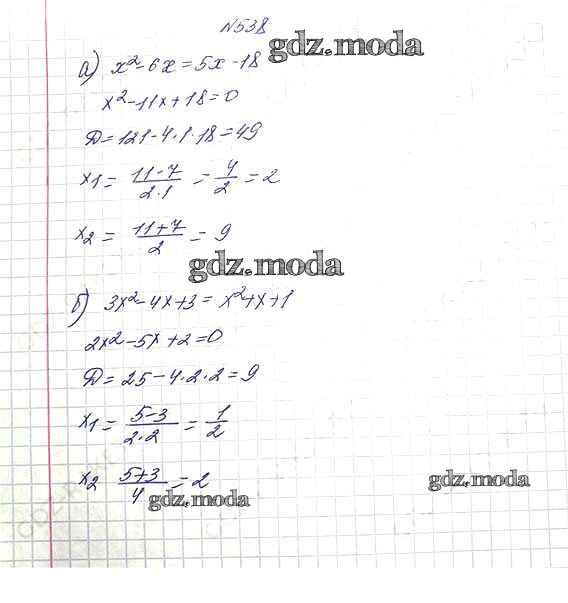 №538
gdz.moda
а) x²-6x=5x-18
x²-11x+18=0
Д=121-4·1·18=49
x1= 11-7/2·1 = 4/2 =2
x2= 11+7/2 = 9
gdz.moda
б) 3x²-4x+3= x²+x+1
2x²-5x+2=0
Д=25-4·2·2=9
x1= 5-3/2·2 = 1/2
x2 5+3/4 =2
gdz.moda
gdz.moda